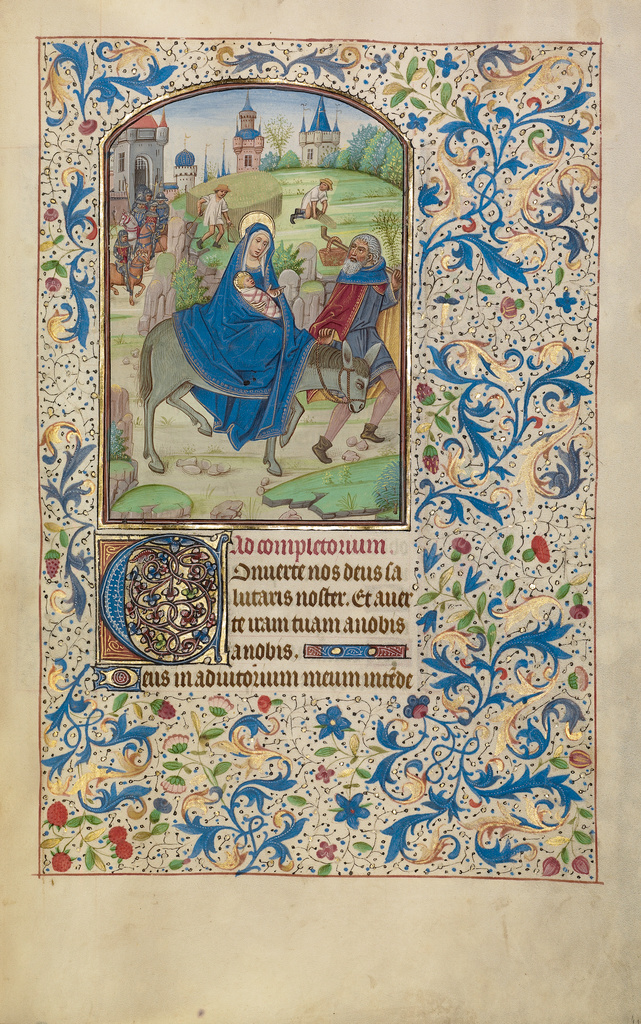 Ad completorium
Onuerte nos deus sa
lutaris noster. Et auer
te iram tuam anobis
anobis.
Deus in adiutorium meum intede